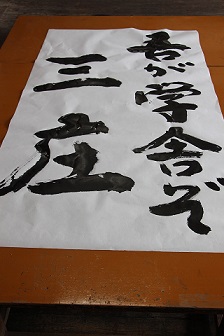 吾が学舎ぞ
三庄